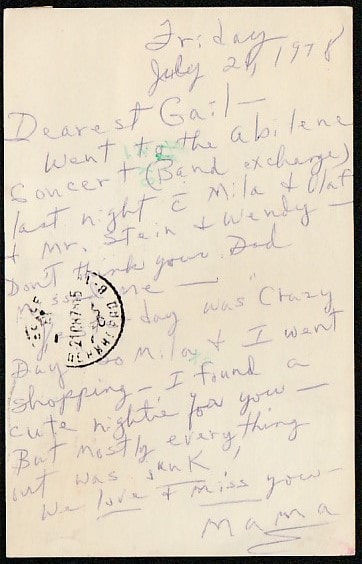 Friday
July 21, 1978
Dearest Gail—
Went to the Abilene
Concert (Band exchange)
last night c̄ Mila & Olaf
& Mr. Stein & Wendy—
Don't think your Dad
Missed me —
day was "Crazy
Day" so Mila & I went
shopping— I found a
cute nightie for you—
But mostly everything
out was junk!
We love & miss you—
Mama